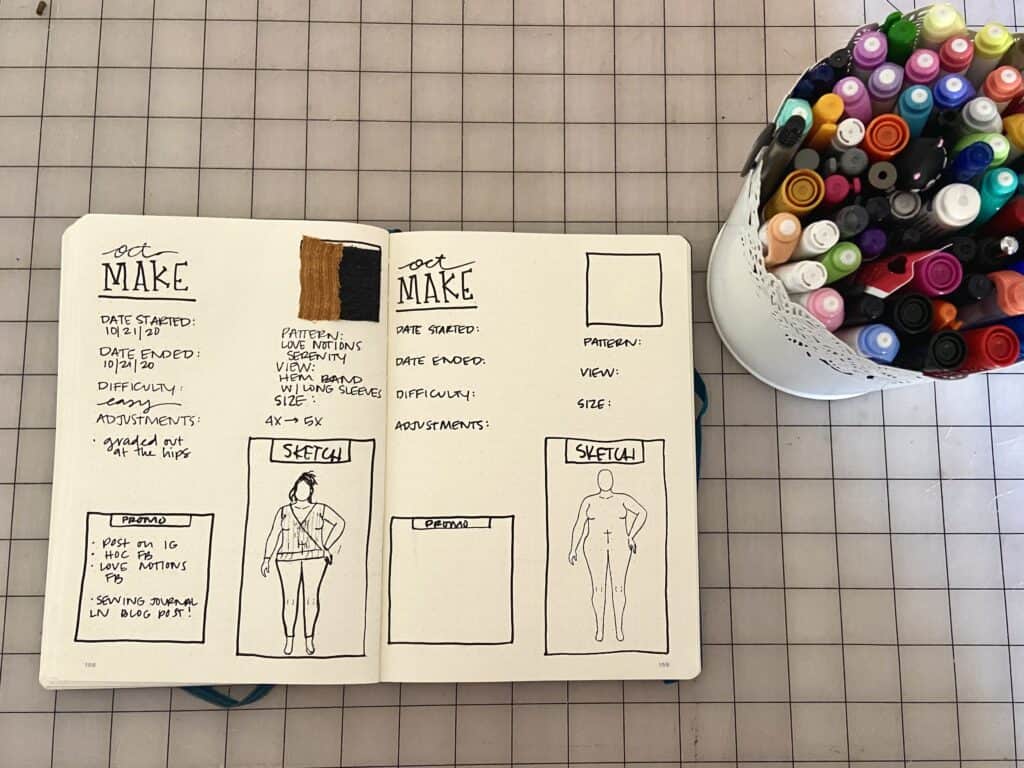 oct
MAKE
DATE STARTED:
10/21/20
DATE ENDED:
10/21/20
DIFFICULTY:
easy
ADJUSTMENTS:
• graded out
at the hips
PATTERN:
LOVE NOTIONS
SERENITY
VIEW:
HEM BAND
W/ LONG SLEEVES
SIZE:
4X → 5X
PROMO
• POST ON IG
• HOC FB
• LOVE NOTIONS
FB
• SEWING JOURNAL
LN BLOG POST!
SKETCH
158
oct
MAKE
DATE STARTED:
DATE ENDED:
DIFFICULTY:
ADJUSTMENTS:
PATTERN:
VIEW:
SIZE:
PROMO
SKETCH
159